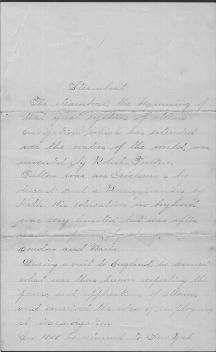 Steamboat.
The steamboat, the beginning of
that great system of steam
navigation which has extended
over the waters of the world, was
invented by Robert Fulton.
Fulton was an Irishman by
descent and a Pennsylvanian by
birth. His education in boyhood
was very limited but was after
London and Paris.
During a visit to England, he learned
what was then known respecting the
power and applications of steam,
and conceived the idea of employing
it in navigation.
he returned to New York